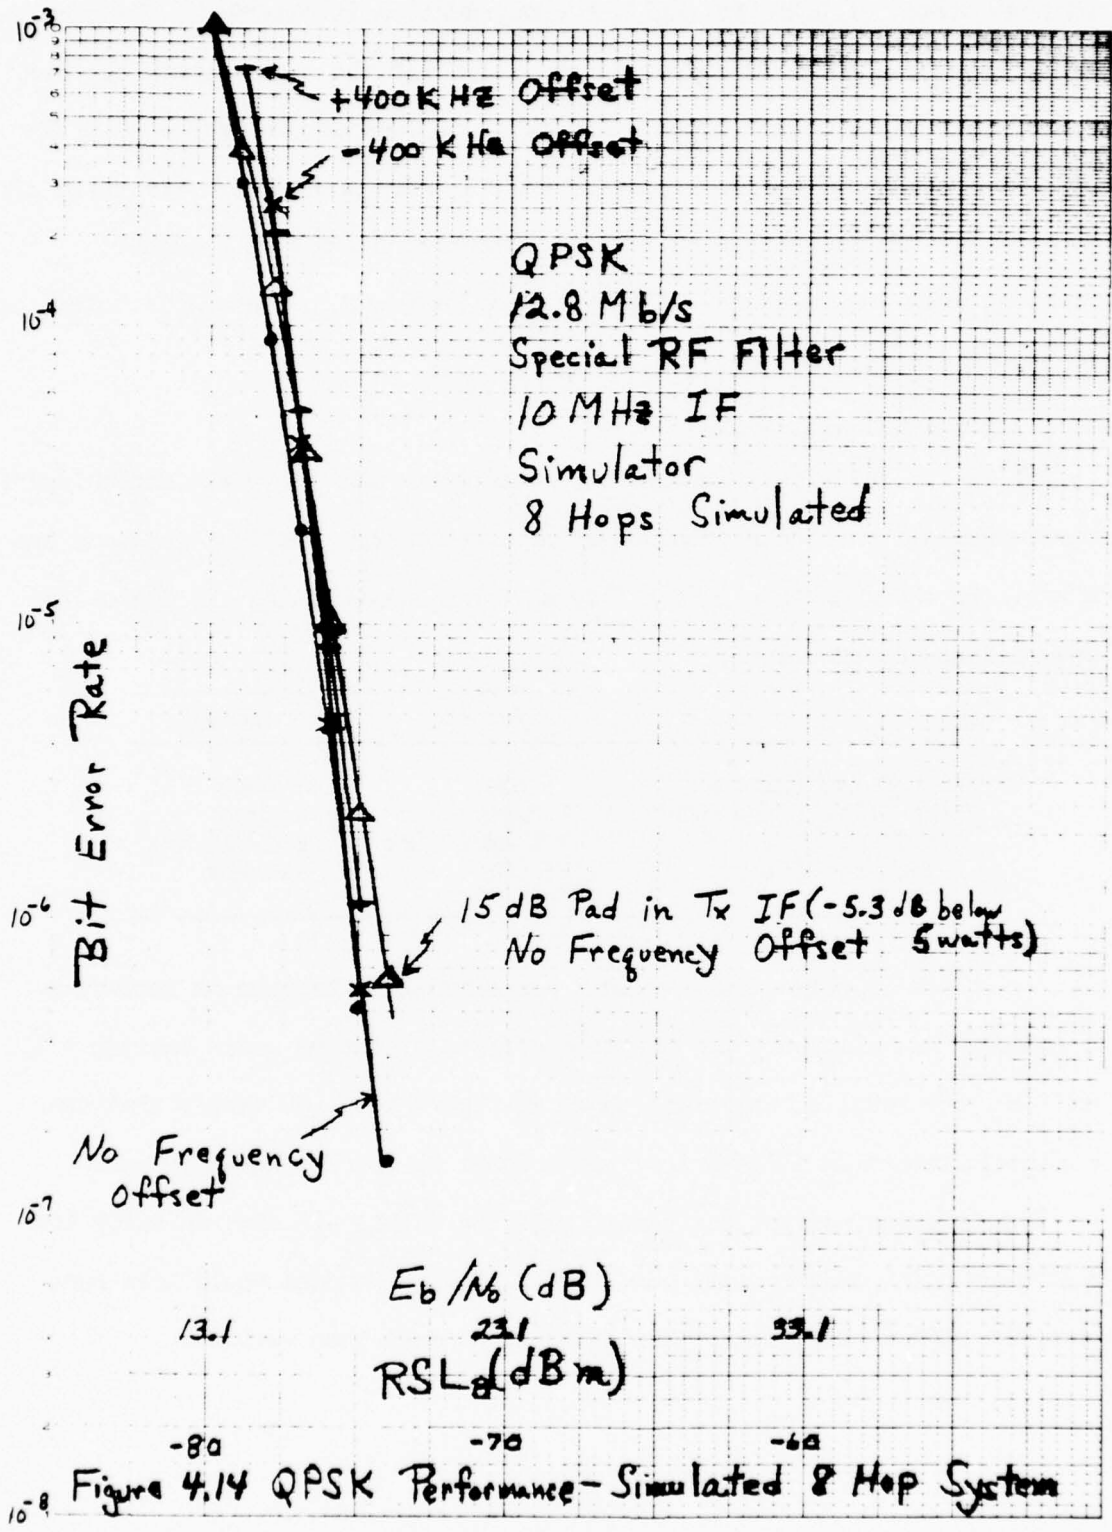 10⁻³
9
8
7
6
5
4
3
2
+400 KHz Offset
-400 KHz Offset
QPSK
12.8 Mb/s
Special RF Filter
10 MHz IF
Simulator
8 Hops Simulated
10⁻⁴
10⁻⁵
Bit Error Rate
10⁻⁶
15 dB Pad in Tx IF (-5.3 dB below
No Frequency Offset 5 watts)
No Frequency
Offset
10⁻⁷
Eb/No (dB)
13.1 23.1 33.1
RSL8 (dBm)
-80 -70 -60
Figure 4.14 QPSK Performance - Simulated 8 Hop System
10⁻⁸